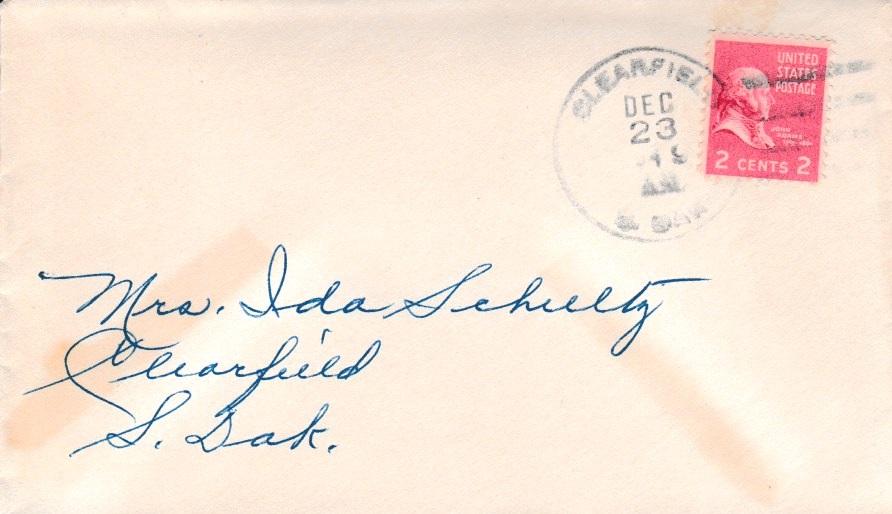 CLEARFIELD
DEC
23
AM
S. DAK
UNITED
STATES
POSTAGE
JOHN
ADAMS
2 CENTS 2
Mrs. Ida Schultz
Clearfield
S. Dak.